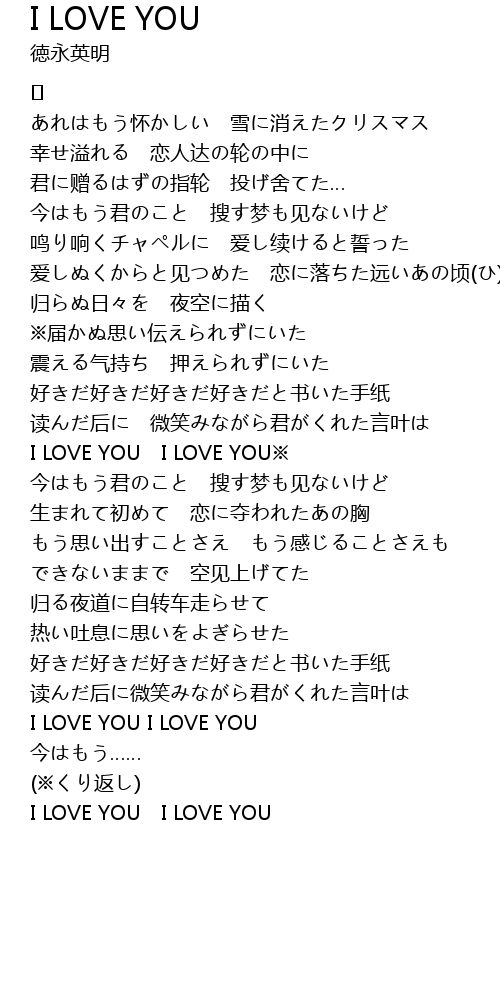 I LOVE YOU
徳永英明
[]
あれはもう怀かしい　雪に消えたクリスマス
幸せ溢れる　恋人达の轮の中に
君に赠るはずの指轮　投げ舍てた...
今はもう君のこと　搜す梦も见ないけど
鸣り响くチャペルに　爱し续けると誓った
爱しぬくからと见つめた　恋に落ちた远いあの顷(ひ)
归らぬ日々を　夜空に描く
※届かぬ思い伝えられずにいた
震える气持ち　押えられずにいた
好きだ好きだ好きだ好きだと书いた手纸
读んだ后に　微笑みながら君がくれた言叶は
I LOVE YOU　I LOVE YOU※
今はもう君のこと　搜す梦も见ないけど
生まれて初めて　恋に夺われたあの胸
もう思い出すことさえ　もう感じることさえも
できないままで　空见上げてた
归る夜道に自转车走らせて
热い吐息に思いをよぎらせた
好きだ好きだ好きだ好きだと书いた手纸
读んだ后に微笑みながら君がくれた言叶は
I LOVE YOU I LOVE YOU
今はもう......
(※くり返し)
I LOVE YOU　I LOVE YOU